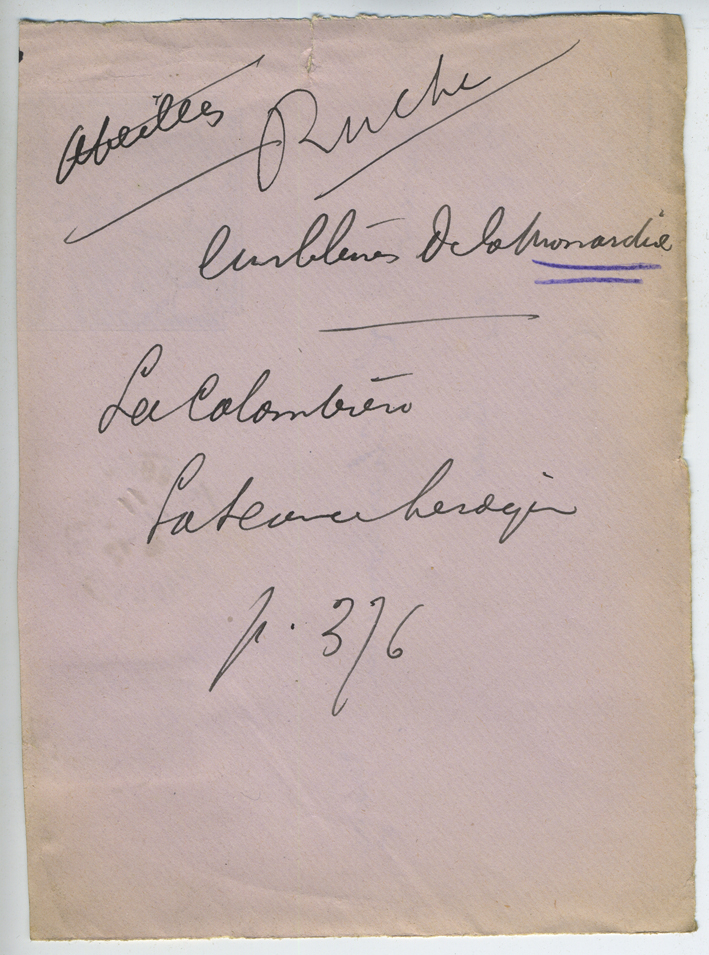 Abeilles Ruche
Emblèmes de la Monarchie
La Colombière
La Science heroique
p. 376